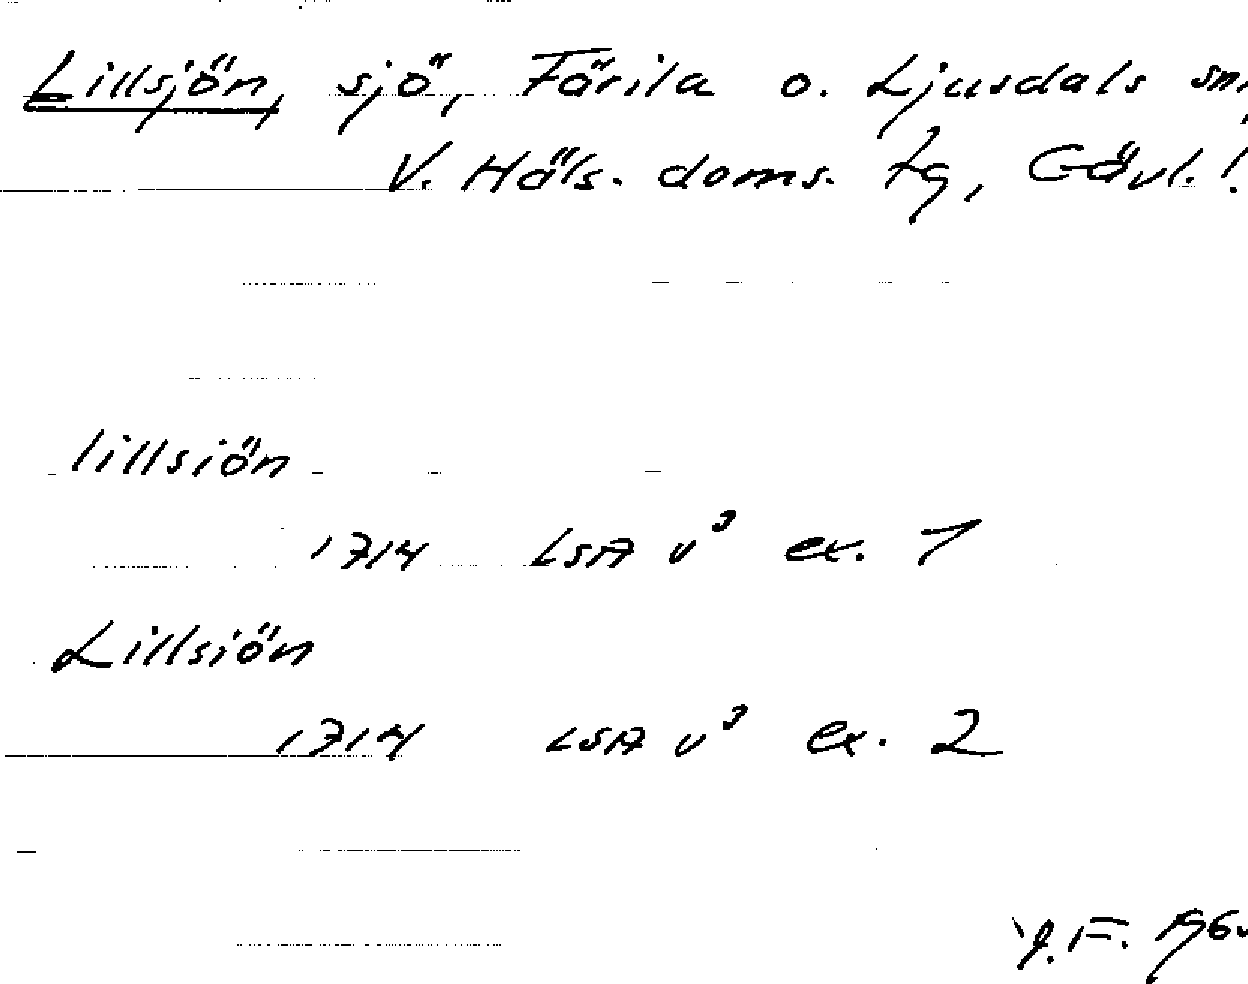 Lillsjön, sjö, Färila o. Ljusdals sn,
V. Häls. doms. tg, Gävl. l.
lillsiön
1714 LSA v³ ex. 1
Lillsiön
1714 LSA v³ ex. 2